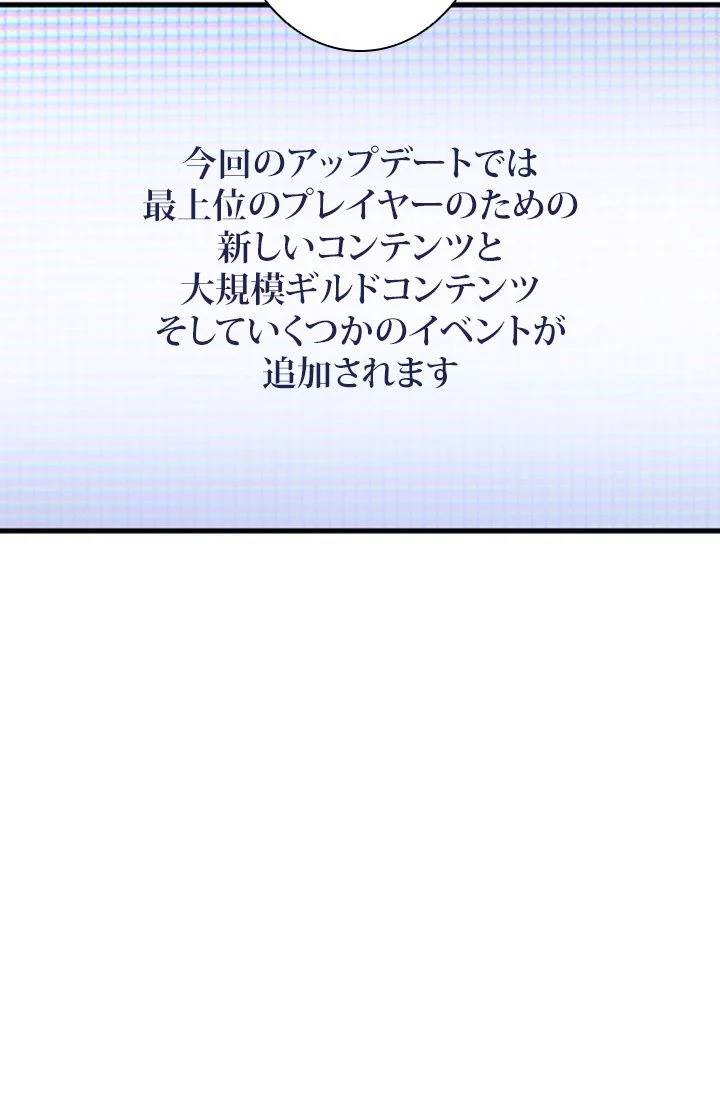 今回のアップデートでは
最上位のプレイヤーのための
新しいコンテンツと
大規模ギルドコンテンツ
そしていくつかのイベントが
追加されます